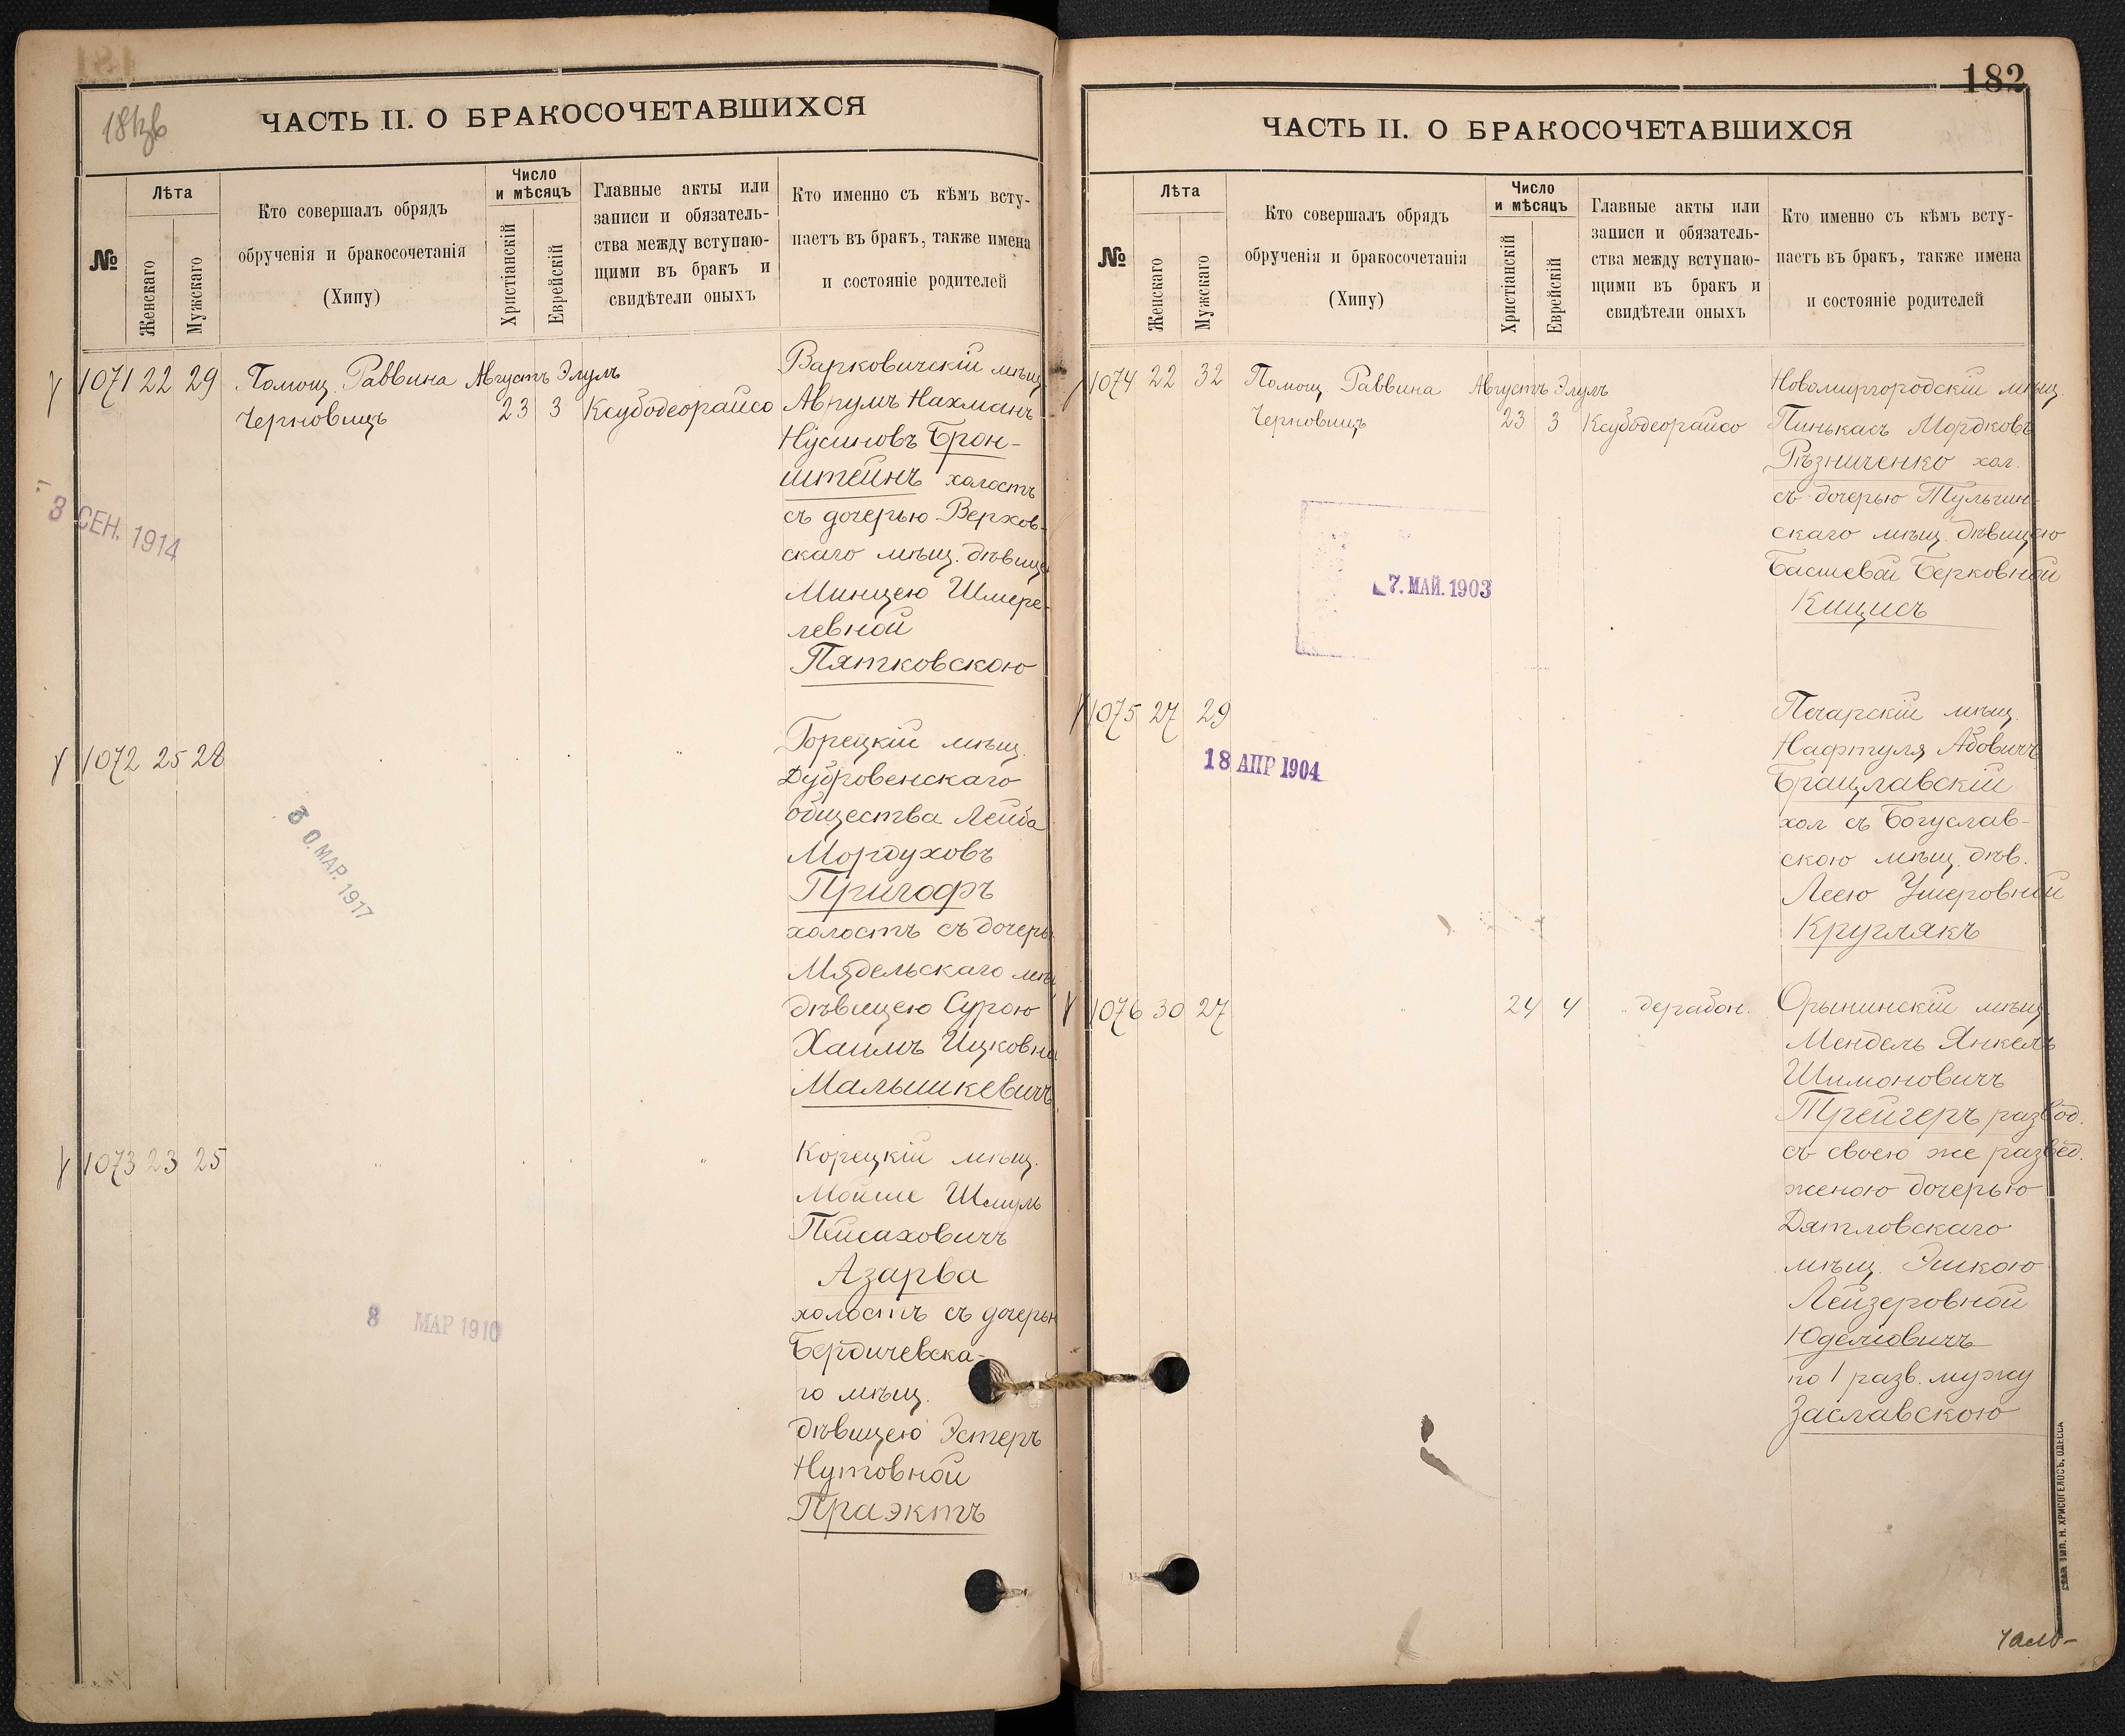 181зв
ЧАСТЬ II. О БРАКОСОЧЕТАВШИХСЯ
№
Лѣта
Женскаго
Мужскаго
Кто совершалъ обрядъ
обрученія и бракосочетанія
(Хипу)
Число
и мѣсяцъ
Христіанскій
Еврейскій
Главные акты или
записи и обязатель-
ства между вступаю-
щими въ бракъ и
свидѣтели оныхъ
Кто именно съ кѣмъ всту-
паетъ въ бракъ, также имена
и состояніе родителей
1071 22 29 Помощ. Раввина Августъ Элулъ
Черновицъ 23 3 Ксубодеорайсо
Варковичскій мѣщ.
Аврумъ Нахманъ
Нусиновъ Брон-
штейнъ холостъ
съ дочерью Верхов-
скаго мѣщ. дѣвицею
Минцею Шмере-
левной
Пятковскою
3 СЕН. 1914
1072 25 28
Горецкій мѣщ.
Дубровенскаго
общества Лейба
Мордуховъ
Пригофъ
холостъ съ дочерью
Мядельскаго мѣщ
дѣвицею Сурою
Хаимъ Ицковна
Малышкевичъ
3 0. МАР. 1917
1073 23 25
Корецкій мѣщ.
Мойше Шмуль
Пейсаховичъ
Азарва
холостъ съ дочерью
Бердичевска-
го мѣщ.
дѣвицею Эстеръ
Нутовной
Праэктъ
8 МАР 1910
182
ЧАСТЬ II. О БРАКОСОЧЕТАВШИХСЯ
№
Лѣта
Женскаго
Мужскаго
Кто совершалъ обрядъ
обрученія и бракосочетанія
(Хипу)
Число
и мѣсяцъ
Христіанскій
Еврейскій
Главные акты или
записи и обязатель-
ства между вступаю-
щими въ бракъ и
свидѣтели оныхъ
Кто именно съ кѣмъ всту-
паетъ въ бракъ, также имена
и состояніе родителей
1074 22 32 Помощ. Раввина Августъ Элулъ
Черновицъ 23 3 Ксубодеорайсо
Новомиргородскій мѣщ.
Пинькасъ Мордковъ
Рѣзниченко хол.
съ дочерью Тульчин-
скаго мѣщ. дѣвицею
Басшевой Берковной
Кицисъ
7. МАЙ. 1903
1075 27 29
Печарскій мѣщ.
Нафтуля Абовичъ
Брацлавскій
хол съ Богуслав-
скою мѣщ. дѣв.
Леею Ушеровной
Круглякъ
18 АПР 1904
1076 30 27 24 4 дерабон.
Орынинскій мѣщ
Мендель Янкель
Шимоновичъ
Трейгеръ развод.
съ своею же развед.
женою дочерью
Дятловскаго
мѣщ. Эшкою
Лейзеровной
Юделіовичъ
по 1 разв. мужу
Заславскою
СЛАВ. ТИП. Н. ХРИСОГЕЛОСЪ, ОДЕССА